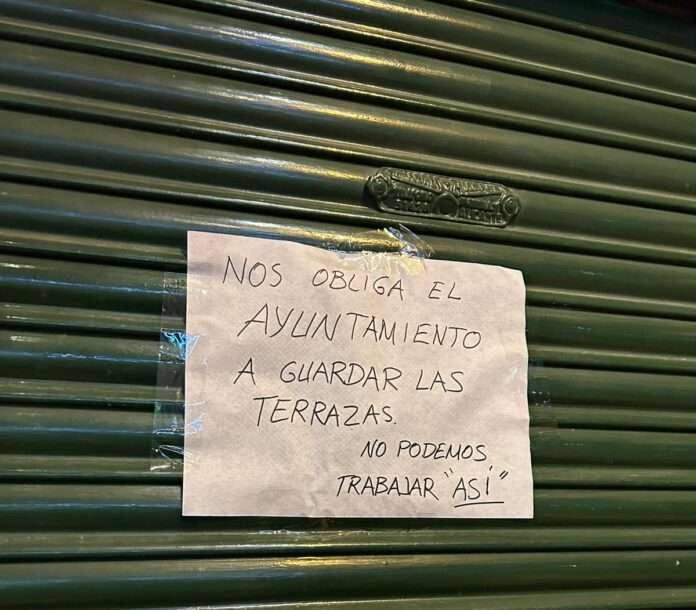 NOS OBLIGA EL
AYUNTAMIENTO
A GUARDAR LAS
TERRAZAS.
NO PODEMOS
TRABAJAR "ASÍ"